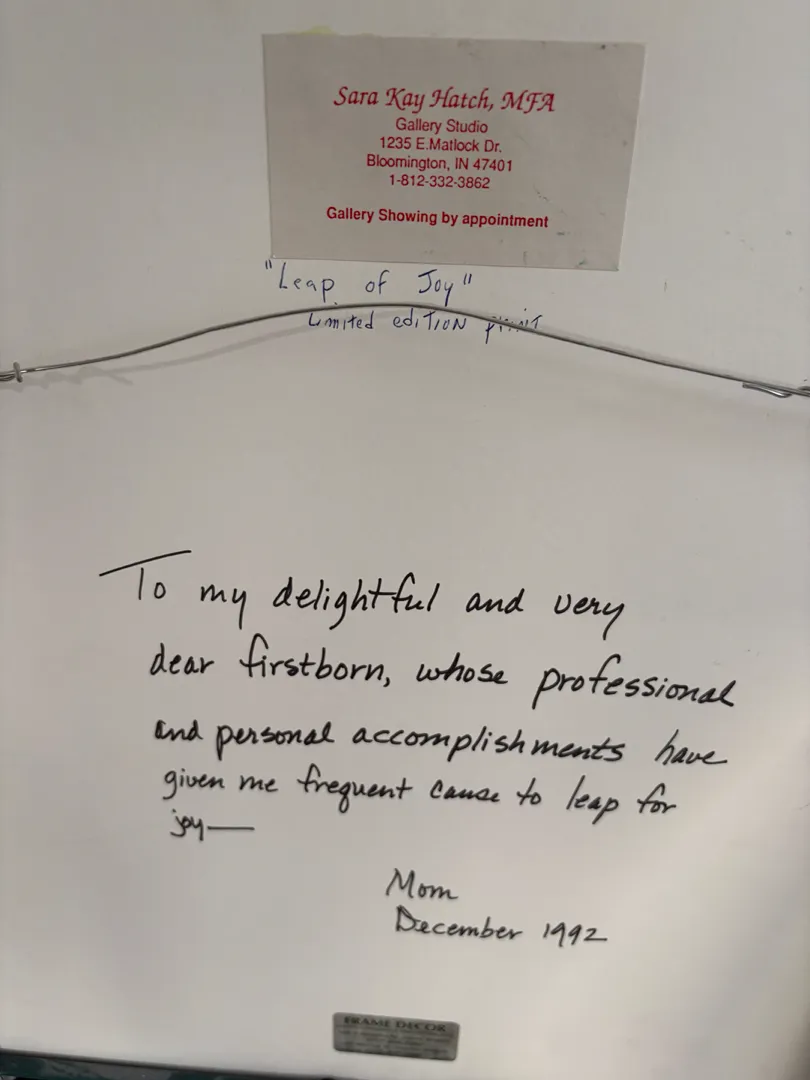 Sara Kay Hatch, MFA
Gallery Studio
1235 E.Matlock Dr.
Bloomington, IN 47401
1-812-332-3862
Gallery Showing by appointment
"Leap of Joy"
Limited edition print
To my delightful and very
dear firstborn, whose professional
and personal accomplishments have
given me frequent cause to leap for
joy—
Mom
December 1992
FRAME DECOR